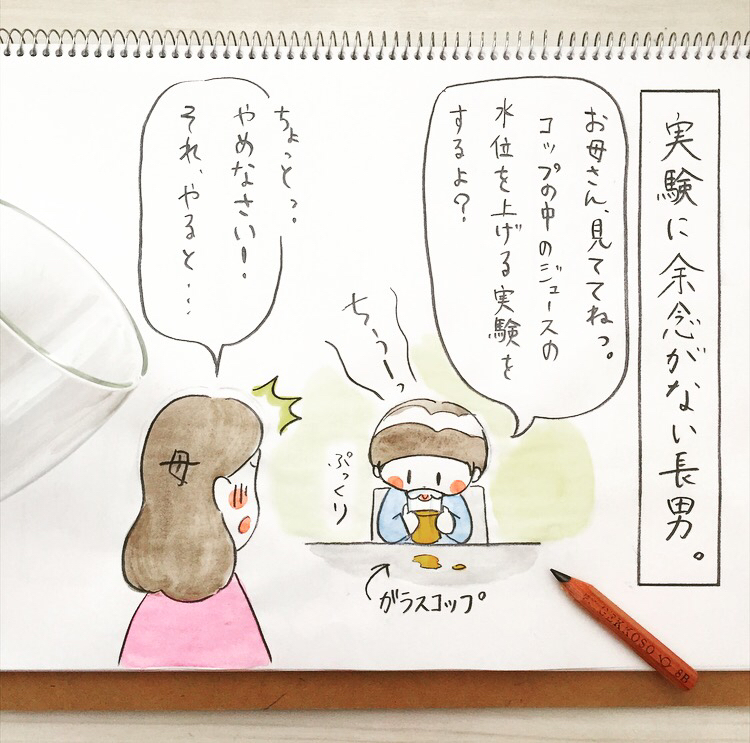 実験に余念がない長男。
お母さん、見ててねっ。
コップの中のジュースの
水位を上げる実験を
するよ？
ちぅうーっ
ぷっくり
ガラスコップ
ちょっとっ。
やめなさい！
それ、やると…
母
GEKKOSO 8B